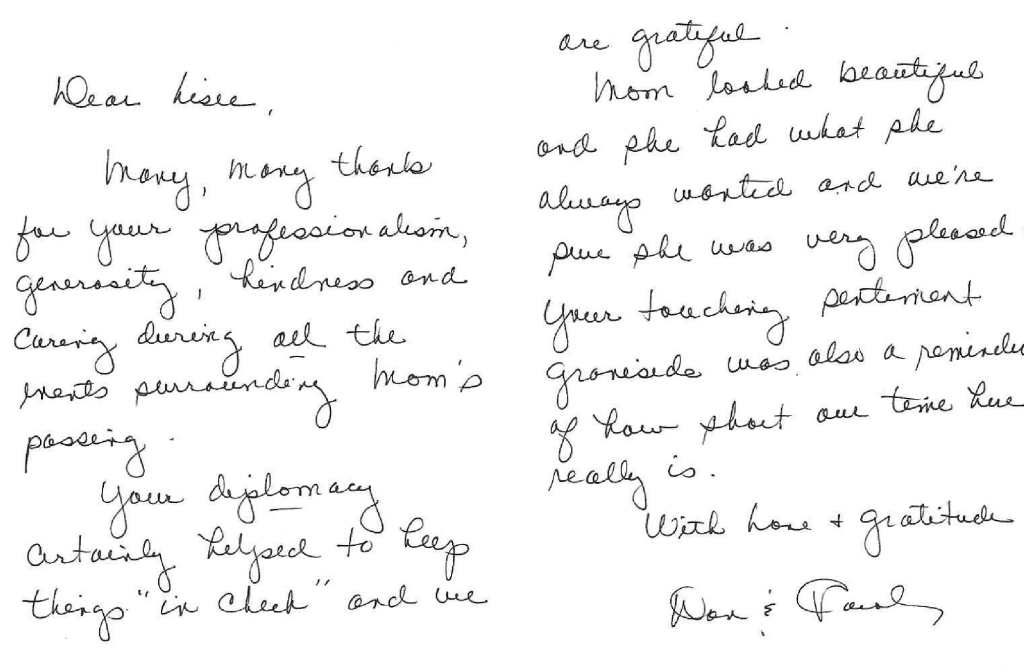 Dear Lisee,
Many, many thanks
for your professionalism,
generosity, kindness and
caring during all the
events surrounding Mom's
passing.
Your diplomacy
certainly helped to keep
things "in check" and we
are grateful.
Mom looked beautiful
and she had what she
always wanted and we're
sure she was very pleased
Your touching sentiment
graveside was also a reminder
of how short our time here
really is.
With love + gratitude
&